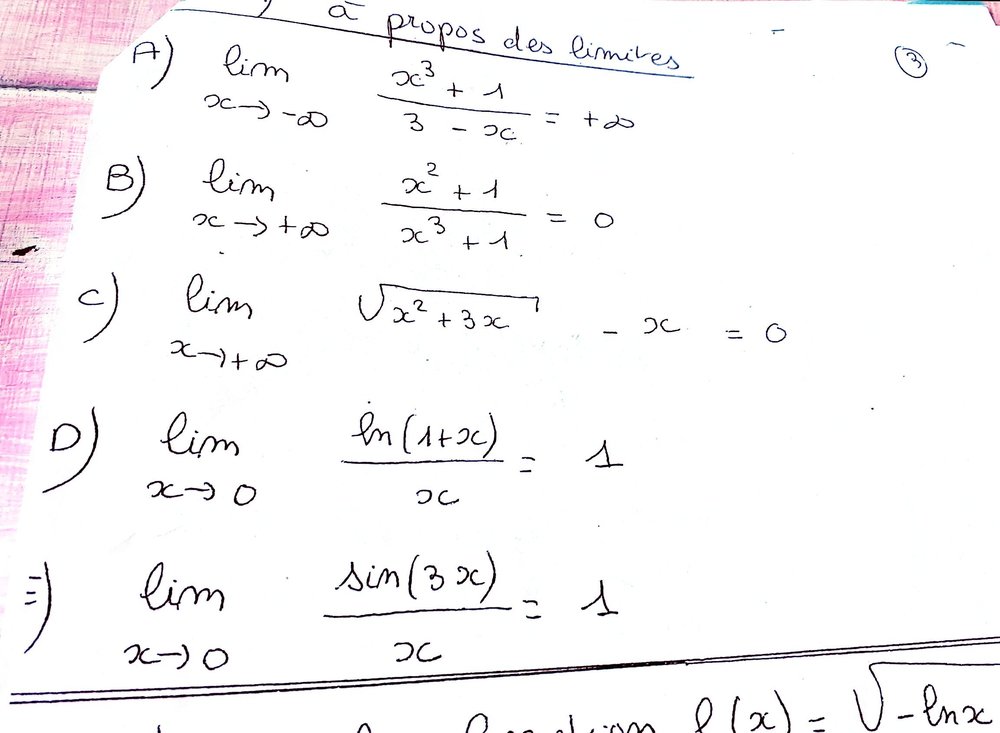 ) à propos des limites
③
A) lim x→-∞ (x³ + 1)/(3 - x) = +∞
B) lim x→+∞ (x² + 1)/(x³ + 1) = 0
C) lim x→+∞ √(x² + 3x) - x = 0
D) lim x→0 ln(1+x)/x = 1
E) lim x→0 sin(3x)/x = 1
f(x) = √-lnx